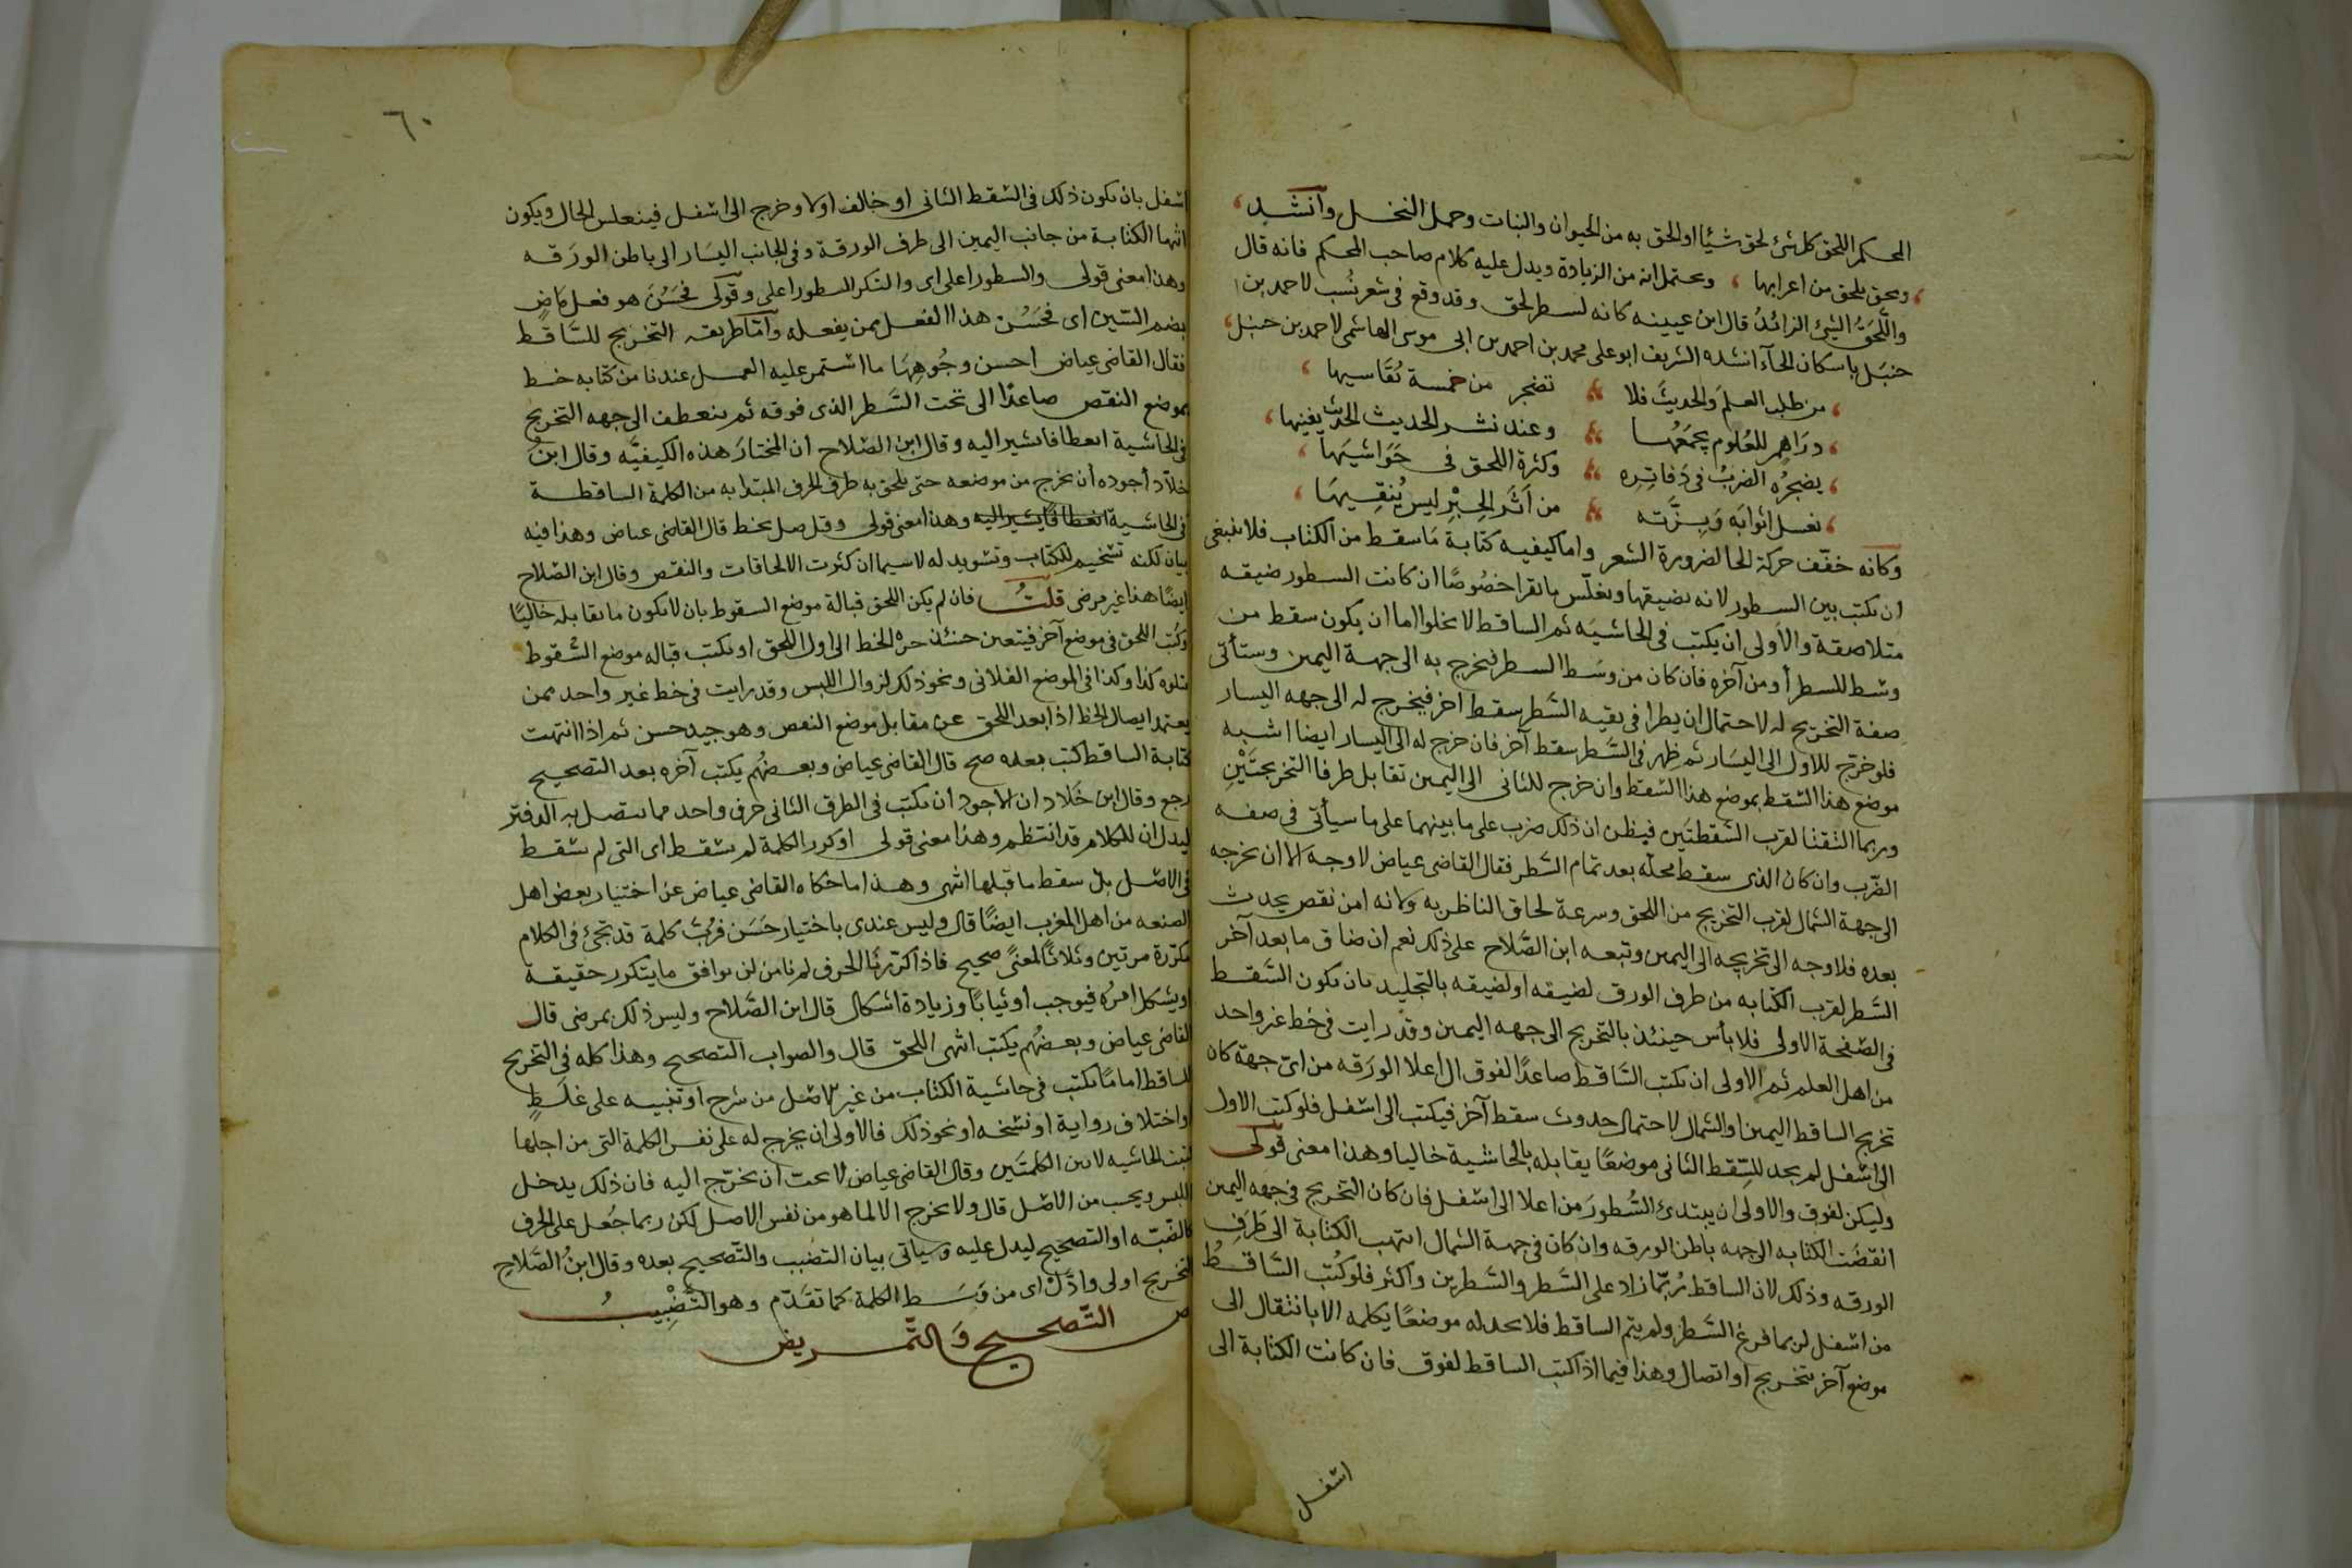 المحكم اللحق كل شئ لحق شيًا او لحق به من الحيوان والنبات وحمل النخل وانشد
ولحق يلحق من اعرابها وحتمل انه من الزيادة ويدل عليه كلام صاحب المحكم فانه قال
واللَّحَقُ الشئ الزائدُ قال ابن عيينه كانه لسطر لحق وقد وقع فى شعر نُسب لاحمد بن
حنبَل باسكان الحآ انشده الشريف ابو على محمد بن احمد بن ابى موسى الهاشمى لاحمد بن حنبل
من طلب العلمَ والحديثَ فلا تضجر من خمسة يُقَاسيها
درَاهم للعُلوم يجمَعُها وعند نشر الحديث يفنيها
يضجرُه الضربُ فى دَفاتِره وكثرة اللحق فى حَوَاشيَها
نغسل اثوابَه وَبِزَّته من اَثَرِ الحِبْرِ ليس يُنقِيهَا
وكانه خفّف حركة الحا لضرورة الشعر واما كيفيه كتابة مَا سقط من الكتاب فلا ينبغى
ان يكتب بين السطور لانه يضيقها ويغلّس ما يقرا خصُوصًا ان كانت السطور ضيقه
متلاصقة والاَولى ان يكتب فى الحاشيَه ثم الساقط لا يخلوا اما ان يكون سقط من
وسط السطر أو من آخره فان كان من وسَط السطر فيخرج به الى جهة اليمين وستأتى
صفة التخريج له لاحتمال ان يطرا فى بقيه السَّطر سقط اخر فيخرج له الى جهه اليسار
فلو خرّج للاول الى اليسَار ثم ظهر فى السَّطر سقط آخر فان خرج له الى اليسار ايضا اشبه
موضع هذا السقط بموضع هذا السقط وان خرج للثانى الى اليمين تقابل طرفا التخريجتَيْنِ
وربما التقتا لقرب السَّقطتَين فيظن ان ذلك ضرب على ما بينهما على ما سيأتى فى صفه
الضَّرب وان كان الذى سقط محلّه بعد تمام السَّطر فقال القاضى عياض لا وجه الا ان يخرجه
الى جهة الشمال لقرب التخريج من اللحق وسرعة لحاق الناظر به ولانه امن نقص يحدث
بعده فلا وجه الى تخريجه الى اليمين وتبعه ابن الصَّلاح على ذلك نعم ان ضاق ما بعد آخر
السَّطر لقرب الكتابه من طرف الورق لضيقه او لضيقه بالتجليد بان يكون السَّقط
فى الصَّفحة الاولى فلا بأس حينئذ بالتخريج الى جهه اليمين وقد رايت فى خط غير واحد
من اهل العلم ثم الاولى ان يكتب السَّاقط صاعدًا لفوق الى اعلا الورَقه من اىّ جهة كان
تخريج الساقط اليمين او الشمال لاحتمال حدوث سقط آخر فيكتب الى اسفل فلو كتب الاول
الى اسفل لم يجد للسِّقط الثانى موضعًا يقابله بالحاشية خاليا وهذا معنى قولى
وليكن لفوق والاولى ان يبتدئ السُّطورَ من اعلا الى اسفل فان كان التخريج فى جهه اليمين
انقضَت الكتابه الى جهه باطن الورقه وان كان فى جهة الشمال انتهت الكتابة الى طَرَفِ
الورقه وذلك لان الساقط رُبَّما زاد على السَّطر والسَّطرين واكثر فلو كُتب السَّاقطُ
من اسفل لربما فرغ السَّطر ولم يتم الساقط فلا يجد له موضعًا يكمله الا بانتقال الى
موضع آخر بتخريج او اتصال وهذا فيما اذا كتب الساقط لفوق فان كانت الكتابة الى
اسفل
٦٠
اسفل بان يكون ذلك فى السقط الثانى او خالف اولا وخرج الى اسفل فينعكس الحال ويكون
انتها الكتابة من جانب اليمين الى طرف الورقة وفى الجانب اليسَار الى باطن الورَقه
وهذا معنى قولى والسطور اعلى اى والتكن السطور اعلى وقولى فحَسُنَ هو فعل مَاضٍ
بضم السّين اى فحَسُن هذا الفعل ممن يفعله وأمّا طريقه التخريج للسَّاقط
فقال القاضى عياض احسن وجُوهِهَا ما استمر عليه العمل عندنا من كتابه خط
بموضع النقص صاعدًا الى تحت السَّطر الذى فوقه ثم ينعطف الى جهه التخريج
فى الحاشية انعطافا يشير اليه وقال ابن الصّلاح ان المختارَ هذه الكيفيَّه وقال ابنُ
خلاّد أجوده أن يخرج من موضعه حتى يلحق به طرف الحرف المبتدا به من الكلمة الساقطة
فى الحاشية انعطافا يشير اليه وهذا معنى قولى وقل صل بخط قال القاضى عياض وهذا فيه
بيان لكنه تسخيم للكتاب وتسويد له لا سيما ان كثرت الالحاقات والنقص وقال ابن الصّلاح
ايضًا هذا غير مرضى قلتُ فان لم يكن اللحق قبالة موضع السقوط بان لا يكون ما يقابله خاليًا
وكُتب اللحق فى موضع آخر فيتعين حينئذ جره الخط الى اول اللحق او يكتب قباله موضع السُّقوط
يتلوه كذا وكذا فى الموضع الفلانى ونحو ذلك لزوال اللبس وقد رايت فى خط غير واحد ممن
يعتمد ايصال الخط اذا بعد اللحق عن مقابل موضع النقص وهو جيد حسن ثم اذا انتهت
كتابة الساقط كتب بعده صح قال القاضى عياض وبعضهُم يكتب آخره بعد التصحيح
رجع وقال ابن خَلاد ان الاجود ان يكتب فى الطرف الثانى حرف واحد مما يتصل به الدفتر
ليدل ان الكلام قد انتظم وهذا معنى قولى او كرر الكلمة لم يسقط اى التى لم تسقط
فى الاصل بل سقط ما قبلها انتهى وهذا ما حكاه القاضى عياض عن اختيار بعض اهل
الصنعه من اهل المغرب ايضًا قال وليس عندى باختيار حَسَن فرُبَّ كلمة قد تجئ فى الكلام
مكرّرة مرتين وثلاثًا لمعنًى صحيح فاذا كرّرنا الحرف لم نامن ان يوافق ما يتكرر حقيقة
او يشكل امرُه فيوجب ارتيابًا وزيادة اشكال قال ابن الصَّلاح وليس ذلك بمرضى قال
القاضى عياض وبعضهُم يكتب انتهى اللحق قال والصواب التصحيح وهذا كله فى التخريج
للساقط اما ما يكتب فى حاشية الكتاب من غير الاصل من شرح او تنبيه على غلَطٍ
او اختلاف رواية او نسخه او نحو ذلك فالاولى ان يخرج له على نفس الكلمة التى من اجلها
كتبت الحاشيه لا بين الكلمتَين وقال القاضى عياض لا يحب ان يخرّج اليه فان ذلك يدخل
اللبس ويحسب من الاصل قال ولا يخرج الا لما هو من نفس الاصل لكن ربما جُعل على الحرف
كالضّبّه او التصحيح ليدل عليه وسياتى بيان التضبب والتّصحيح بعده وقال ابنُ الصَّلاح
التخريج اولى وادَلّ اى من وَسَط الكلمة كما تقدّم وهو التَّضْبِيبُ
ص التّصحيح وَالتّمريض